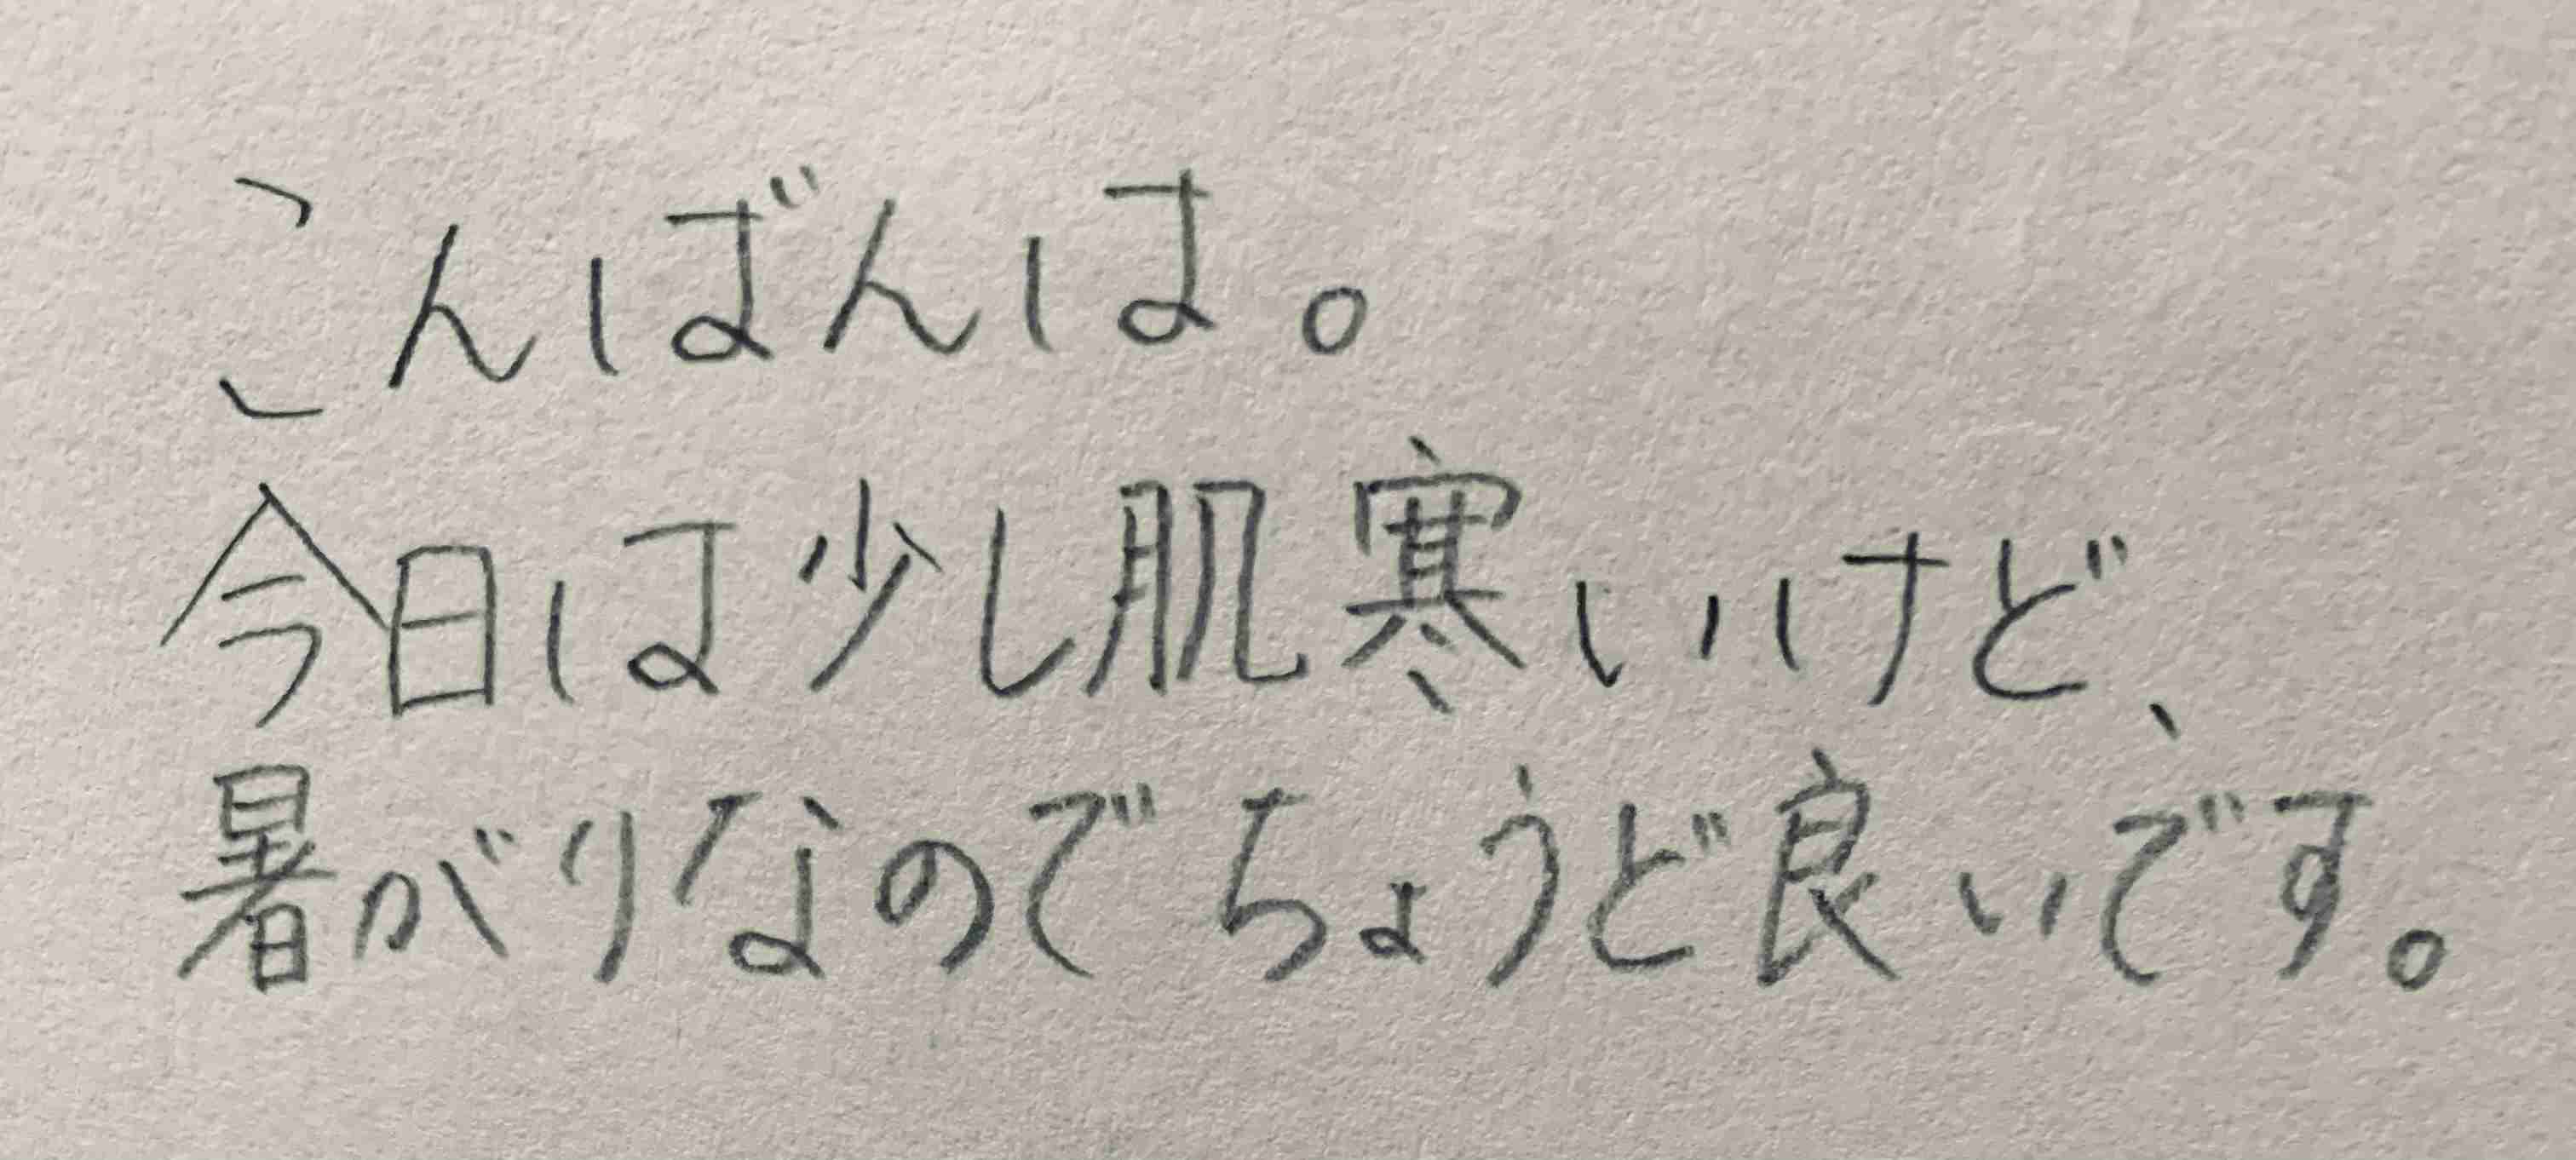 こんばんは。
今日は少し肌寒いけど、
暑がりなのでちょうど良いです。